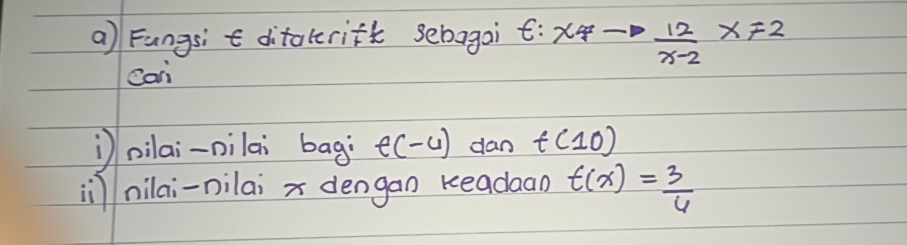 a) Fungsi f ditakrifk sebagai f: x → 12/(x-2) x ≠ 2
Cari
i) nilai-nilai bagi f(-4) dan f(10)
ii) nilai-nilai x dengan keadaan f(x) = 3/4